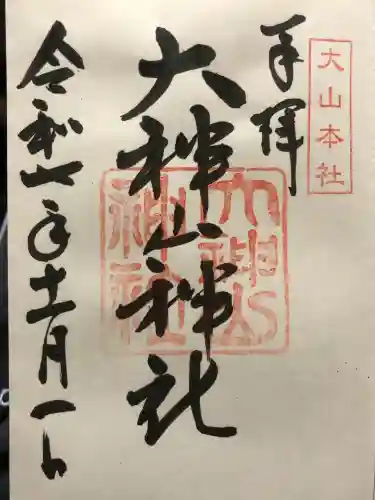 大山本社
奉拝
大神山神社
大神山神社
令和一年十一月一日